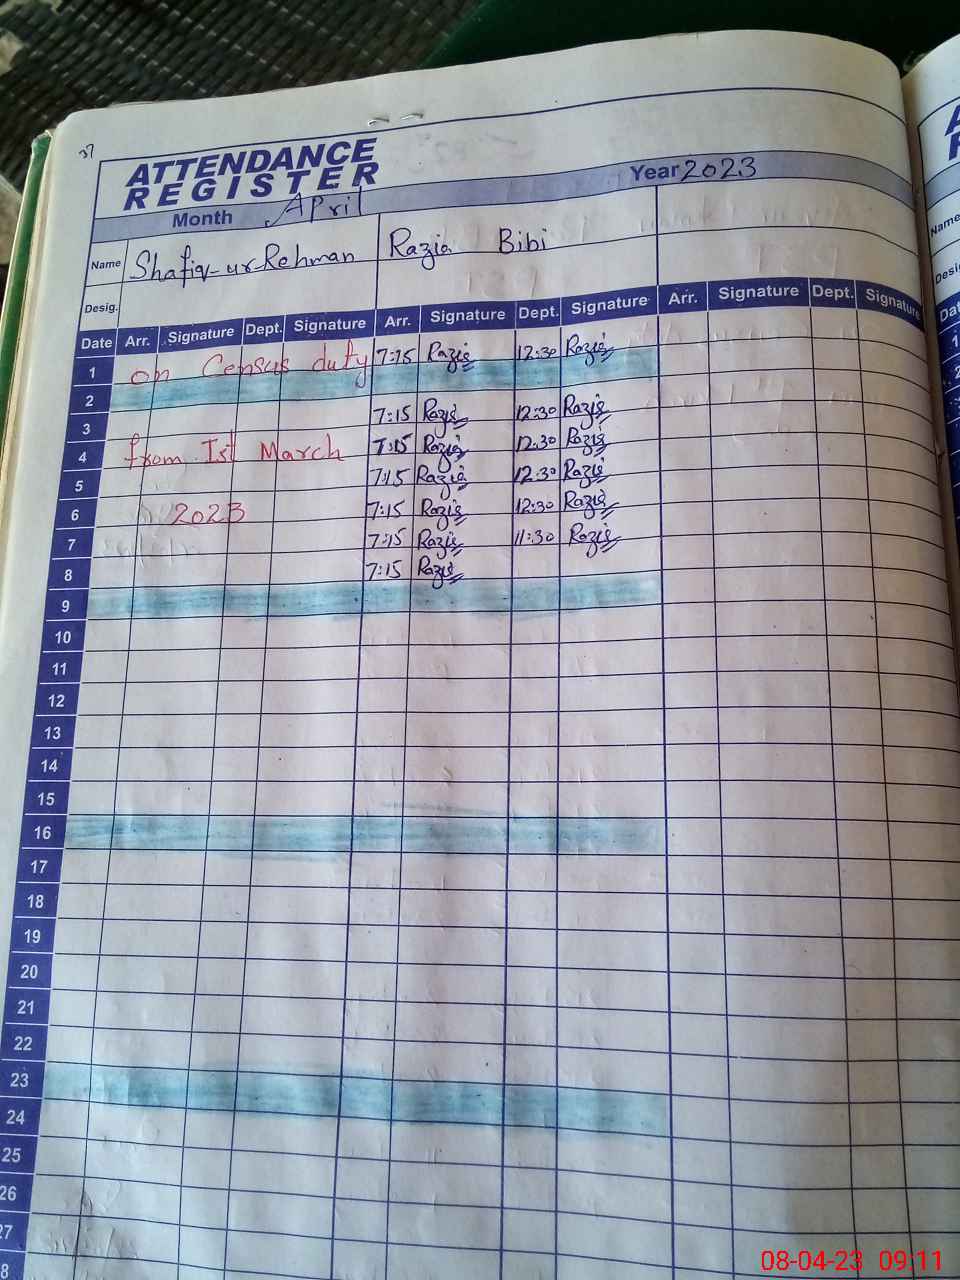 37
ATTENDANCE
REGISTER
Year 2023
Month April
Name Shafiq-ur-Rehman Razia Bibi
Desig.
Date Arr. Signature Dept. Signature Arr. Signature Dept. Signature Arr. Signature Dept. Signature
1 on Census duty 7:15 Razia 12:30 Razia
2
3 7:15 Razia 12:30 Razia
4 from Ist March 7:15 Razia 12:30 Razia
5 7:15 Razia 12:30 Razia
6 2023 7:15 Razia 12:30 Razia
7 7:15 Razia 11:30 Razia
8 7:15 Razia
9
10
11
12
13
14
15
16
17
18
19
20
21
22
23
24
25
26
27
8
Name
Desig
Dat
1
2
08-04-23 09:11